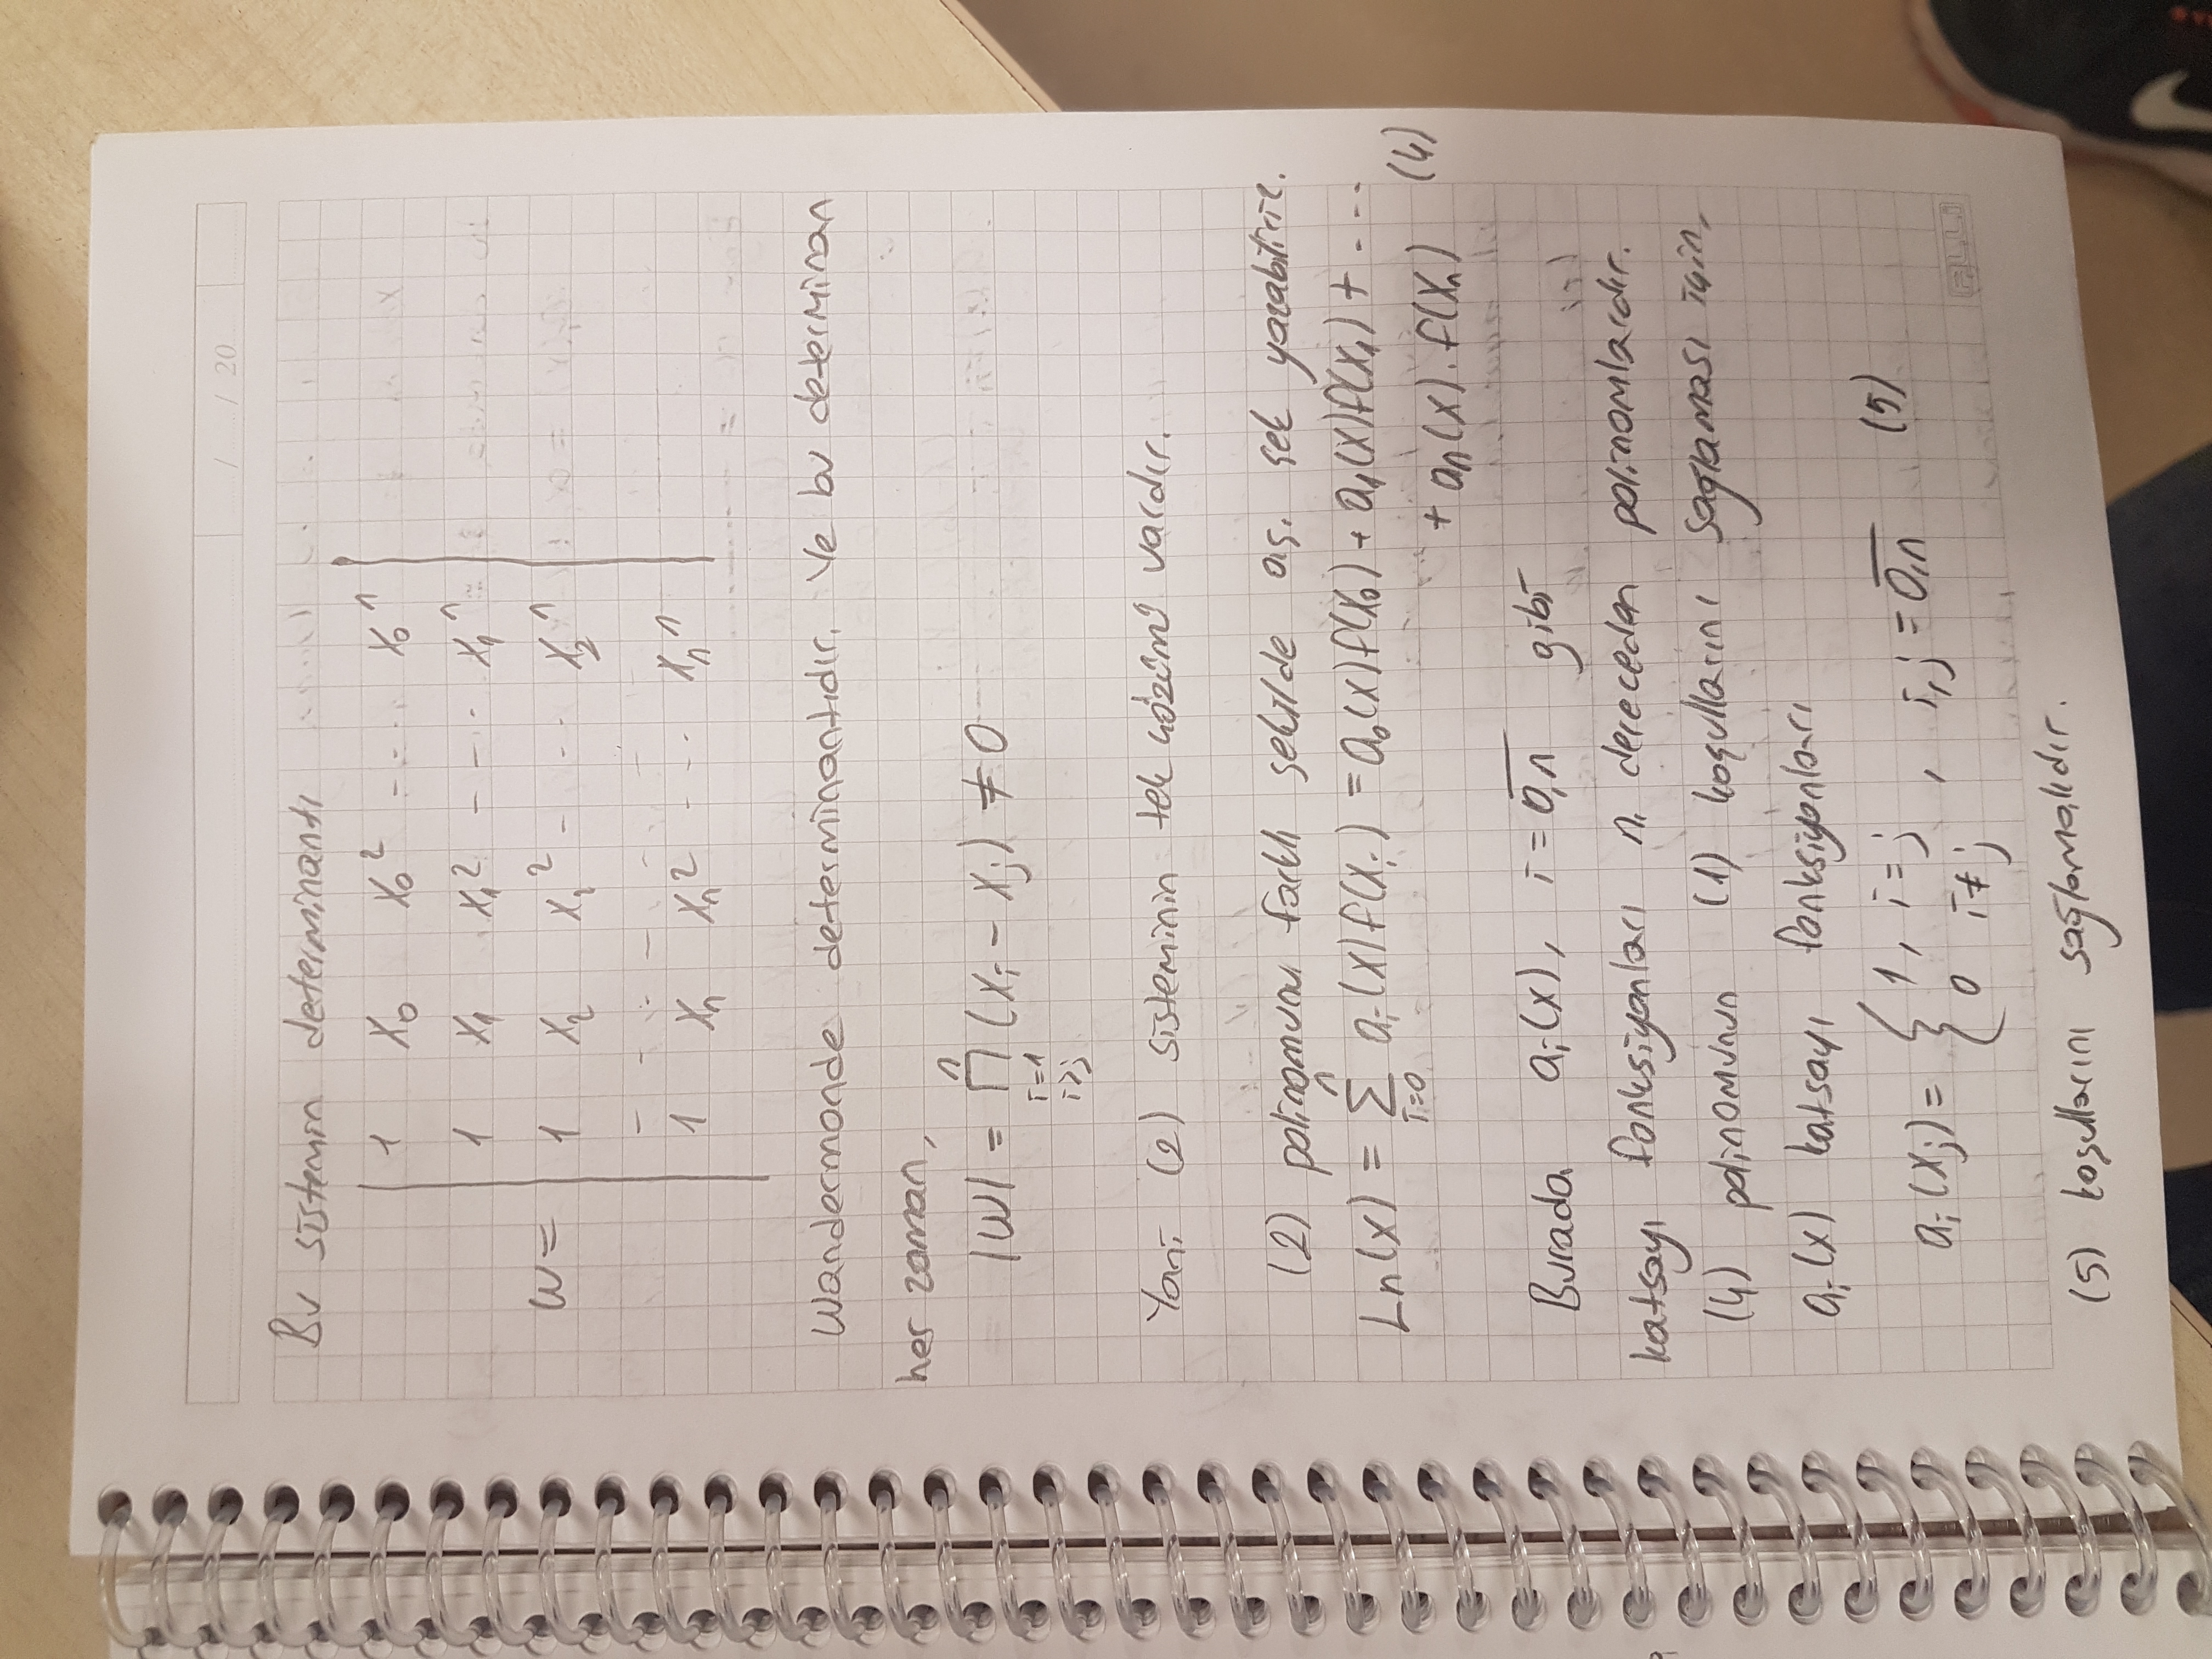 / / 20
Bu sistemin determinantı
1 x₀ x₀² ---- x₀ⁿ
1 x₁ x₁² ---- x₁ⁿ
w = 1 x₂ x₂² - -- x₂ⁿ
- - - - - - - -
1 xₙ xₙ² - -- xₙⁿ
Wandermonde determinantıdır. Ve bu determinan
her zaman,
|W| = ∏ (xᵢ - xⱼ) ≠ 0
n
i=1
i>j
Yani (2) sisteminin tek çözümü vardır.
(2) polinomunu farklı şekilde aş. şek yazabiliriz.
Ln(x) = ∑ⁿᵢ₌₀ aᵢ(x)f(xᵢ) = a₀(x)f(x₀) + a₁(x)f(x₁) + ...
+ aₙ(x).f(xₙ) (4)
Burada aᵢ(x), i = 0,n gibi
katsayı fonksiyonları n. dereceden polinomlardır.
(4) polinomunun (1) koşullarını sağlaması için,
aᵢ(x) katsayı fonksiyonları
aᵢ(xⱼ) = { 1, i = j
0 i ≠ j , i,j = 0,n (5)
ALLİ
(5) koşullarını sağlamalıdır.